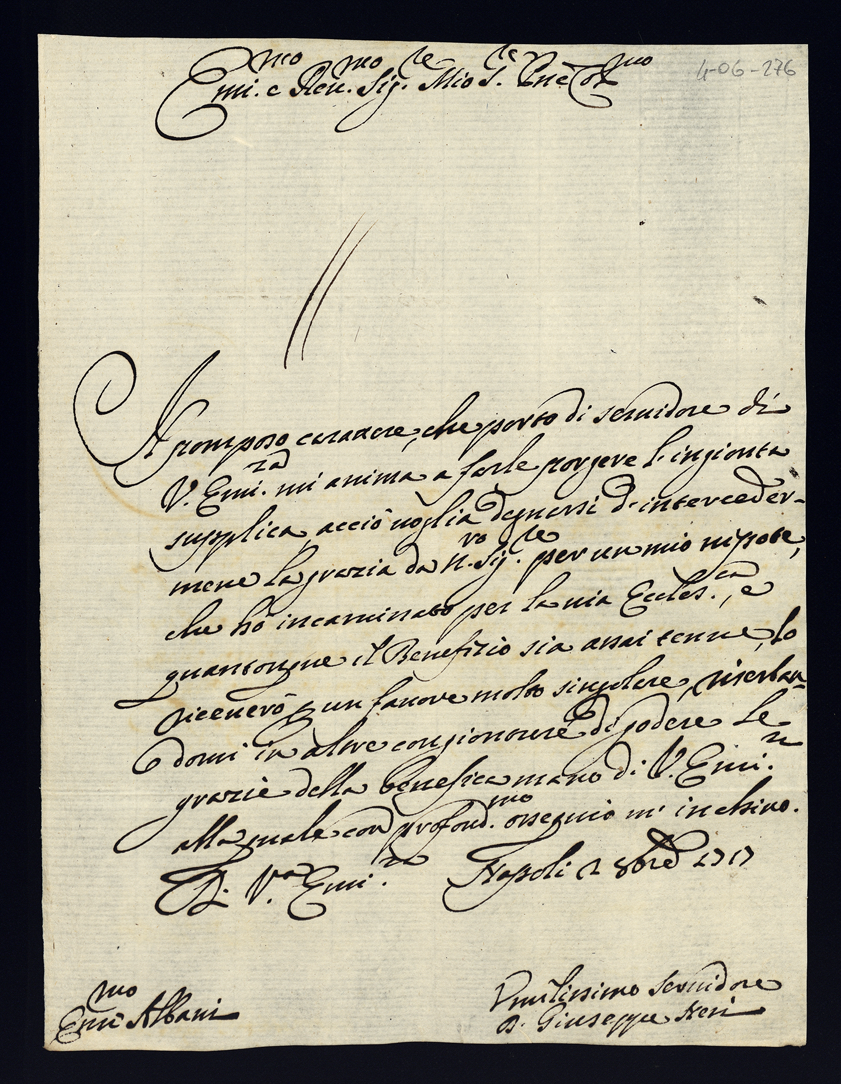 4-06-276
Emi.mo e Reu.mo Sig.re Mio S.re Pne Col.mo
Il pomposo carattere, che porto di seruidore di
V. Emi.za mi anima a farle porgere l'ingionta
supplica, acciò uoglia degnarsi d'interceder-
mene la grazia da N.ro Sig.re per un mio nipote,
che hò incaminato per la uia Eccles.ca, e
quantonque il Benefizio sia assai tenue, lo
riceuerò p un fauore molto singolare, riserban
domi in altre congionture di godere le
grazie della benefica mano di V. Emi.za
alla quale con profond.mo ossequio m'inchino.
Di V.ra Emi.za Napoli 2 8bre 1717
Emo Albani
Vmilissimo Seruidore
D. Giuseppe Neri